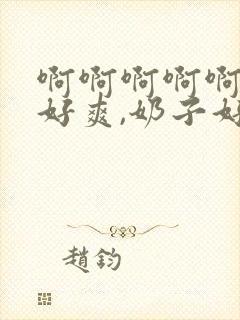 啊啊啊啊啊
好爽,奶子好
趙鈞